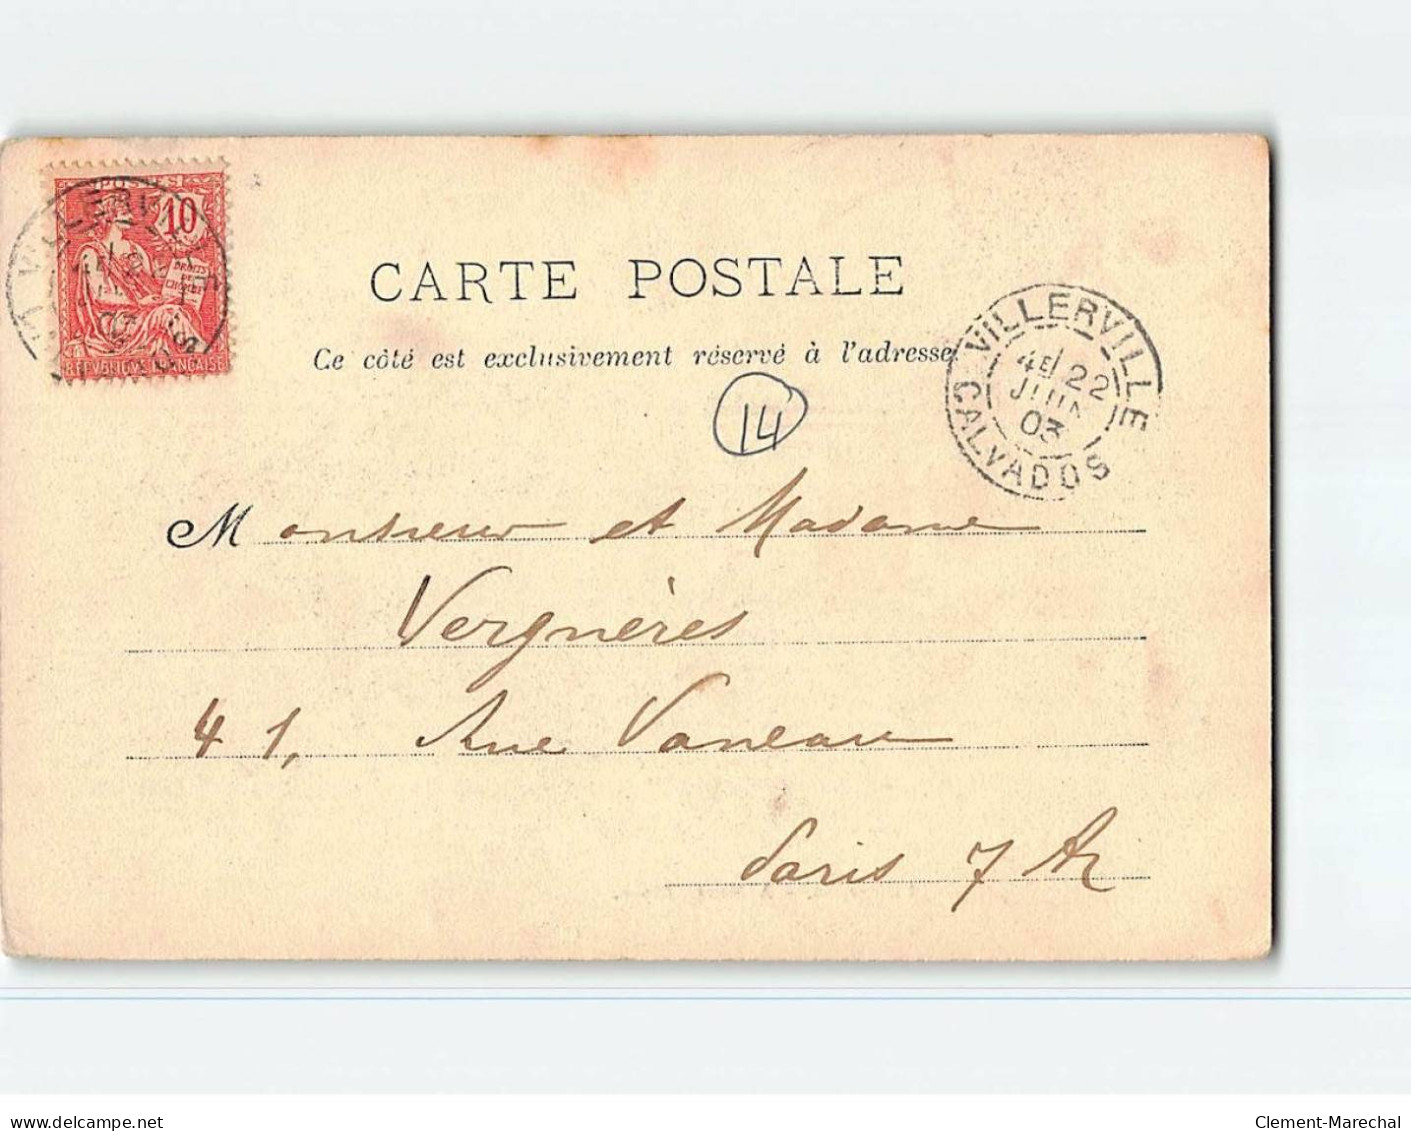 POSTES
10
DROITS
DE
L'HOMME
REPVBLIQVE FRANÇAISE
CARTE POSTALE
Ce côté est exclusivement réservé à l'adresse
VILLERVILLE
4E 22
JUIN
03
CALVADOS
14
Monsieur et Madame
Vergnères
41, Rue Vaneau
Paris 7 Ar
delcampe.net
Clement-Marechal